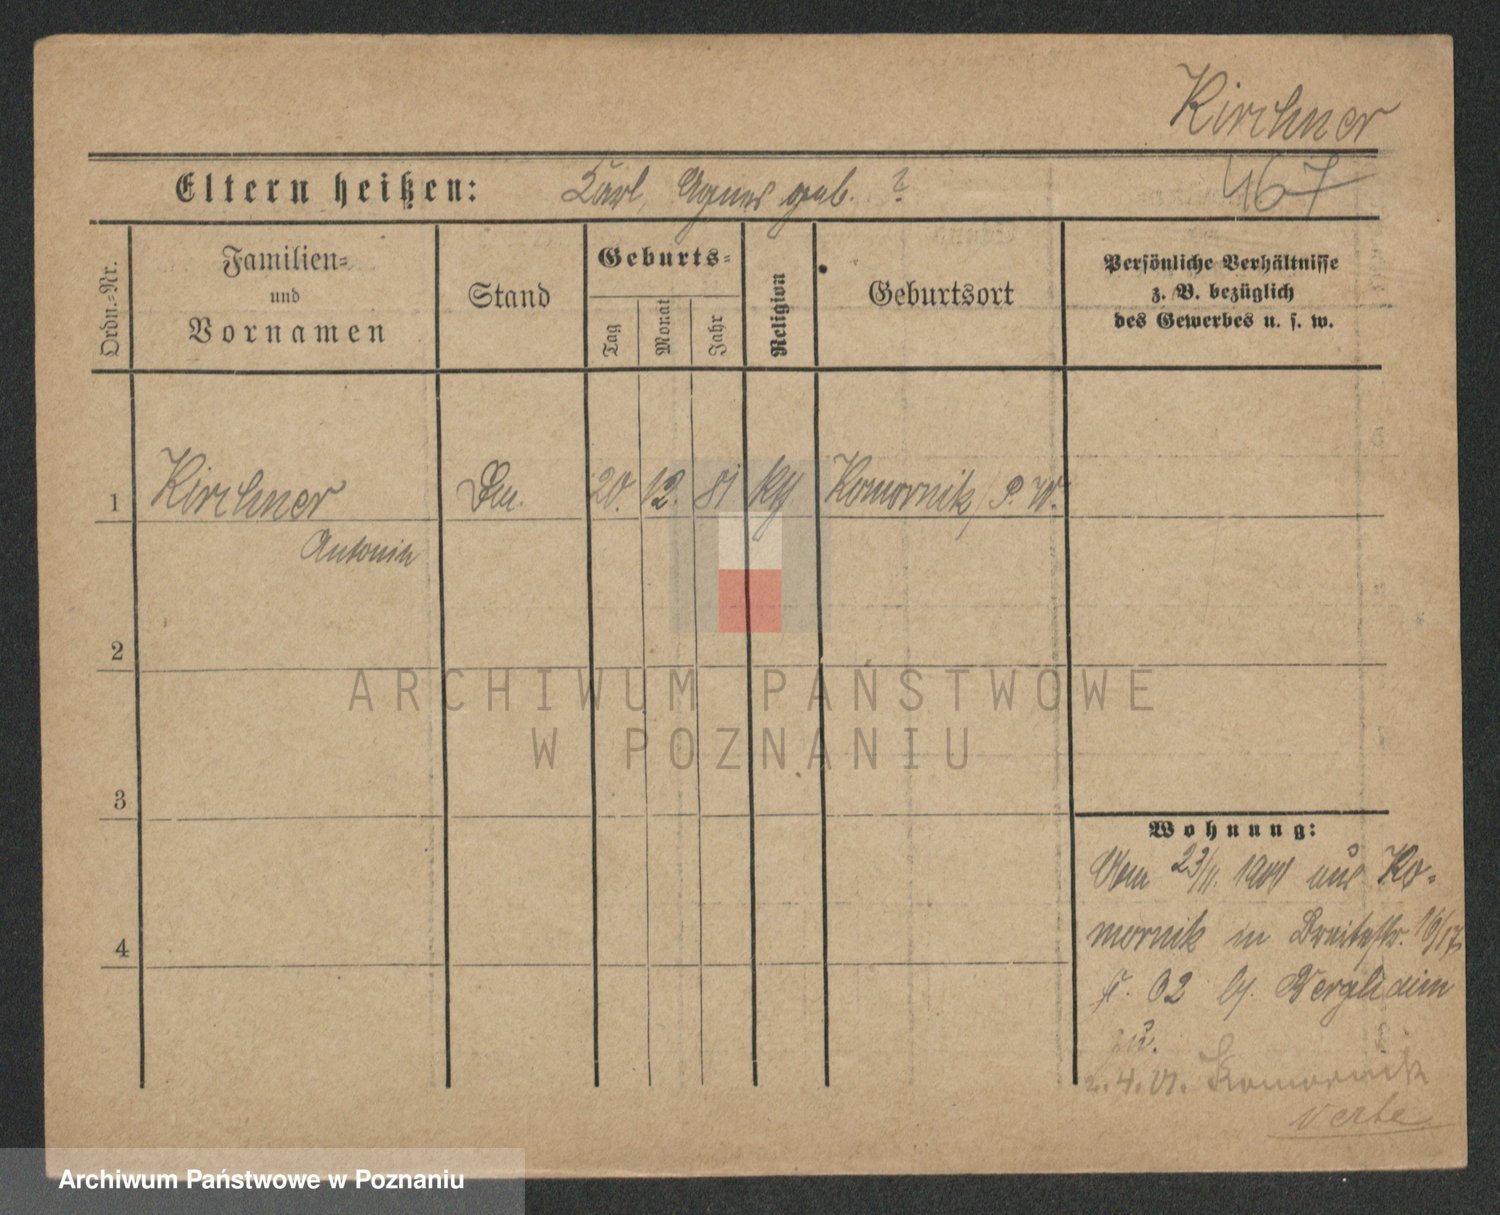 Kirchner
467
Eltern heißen: Karl, Agnes geb. ?
Ordn.=Nr.
Familien=
und
Vornamen
Stand
Geburts=
Tag
Monat
Jahr
Religion
Geburtsort
Persönliche Verhältnisse
z. B. bezüglich
des Gewerbes u. s. w.
1 Kirchner 20. 12. 81 Komornik, P. W.
Antonia
2
ARCHIWUM PAŃSTWOWE
W POZNANIU
3
4
Wohnung:
Vom 23/11. aus Ko-
mornik in Breitestr. 16/17
02
zu.
2.4.01. Komornik
verte
Archiwum Państwowe w Poznaniu